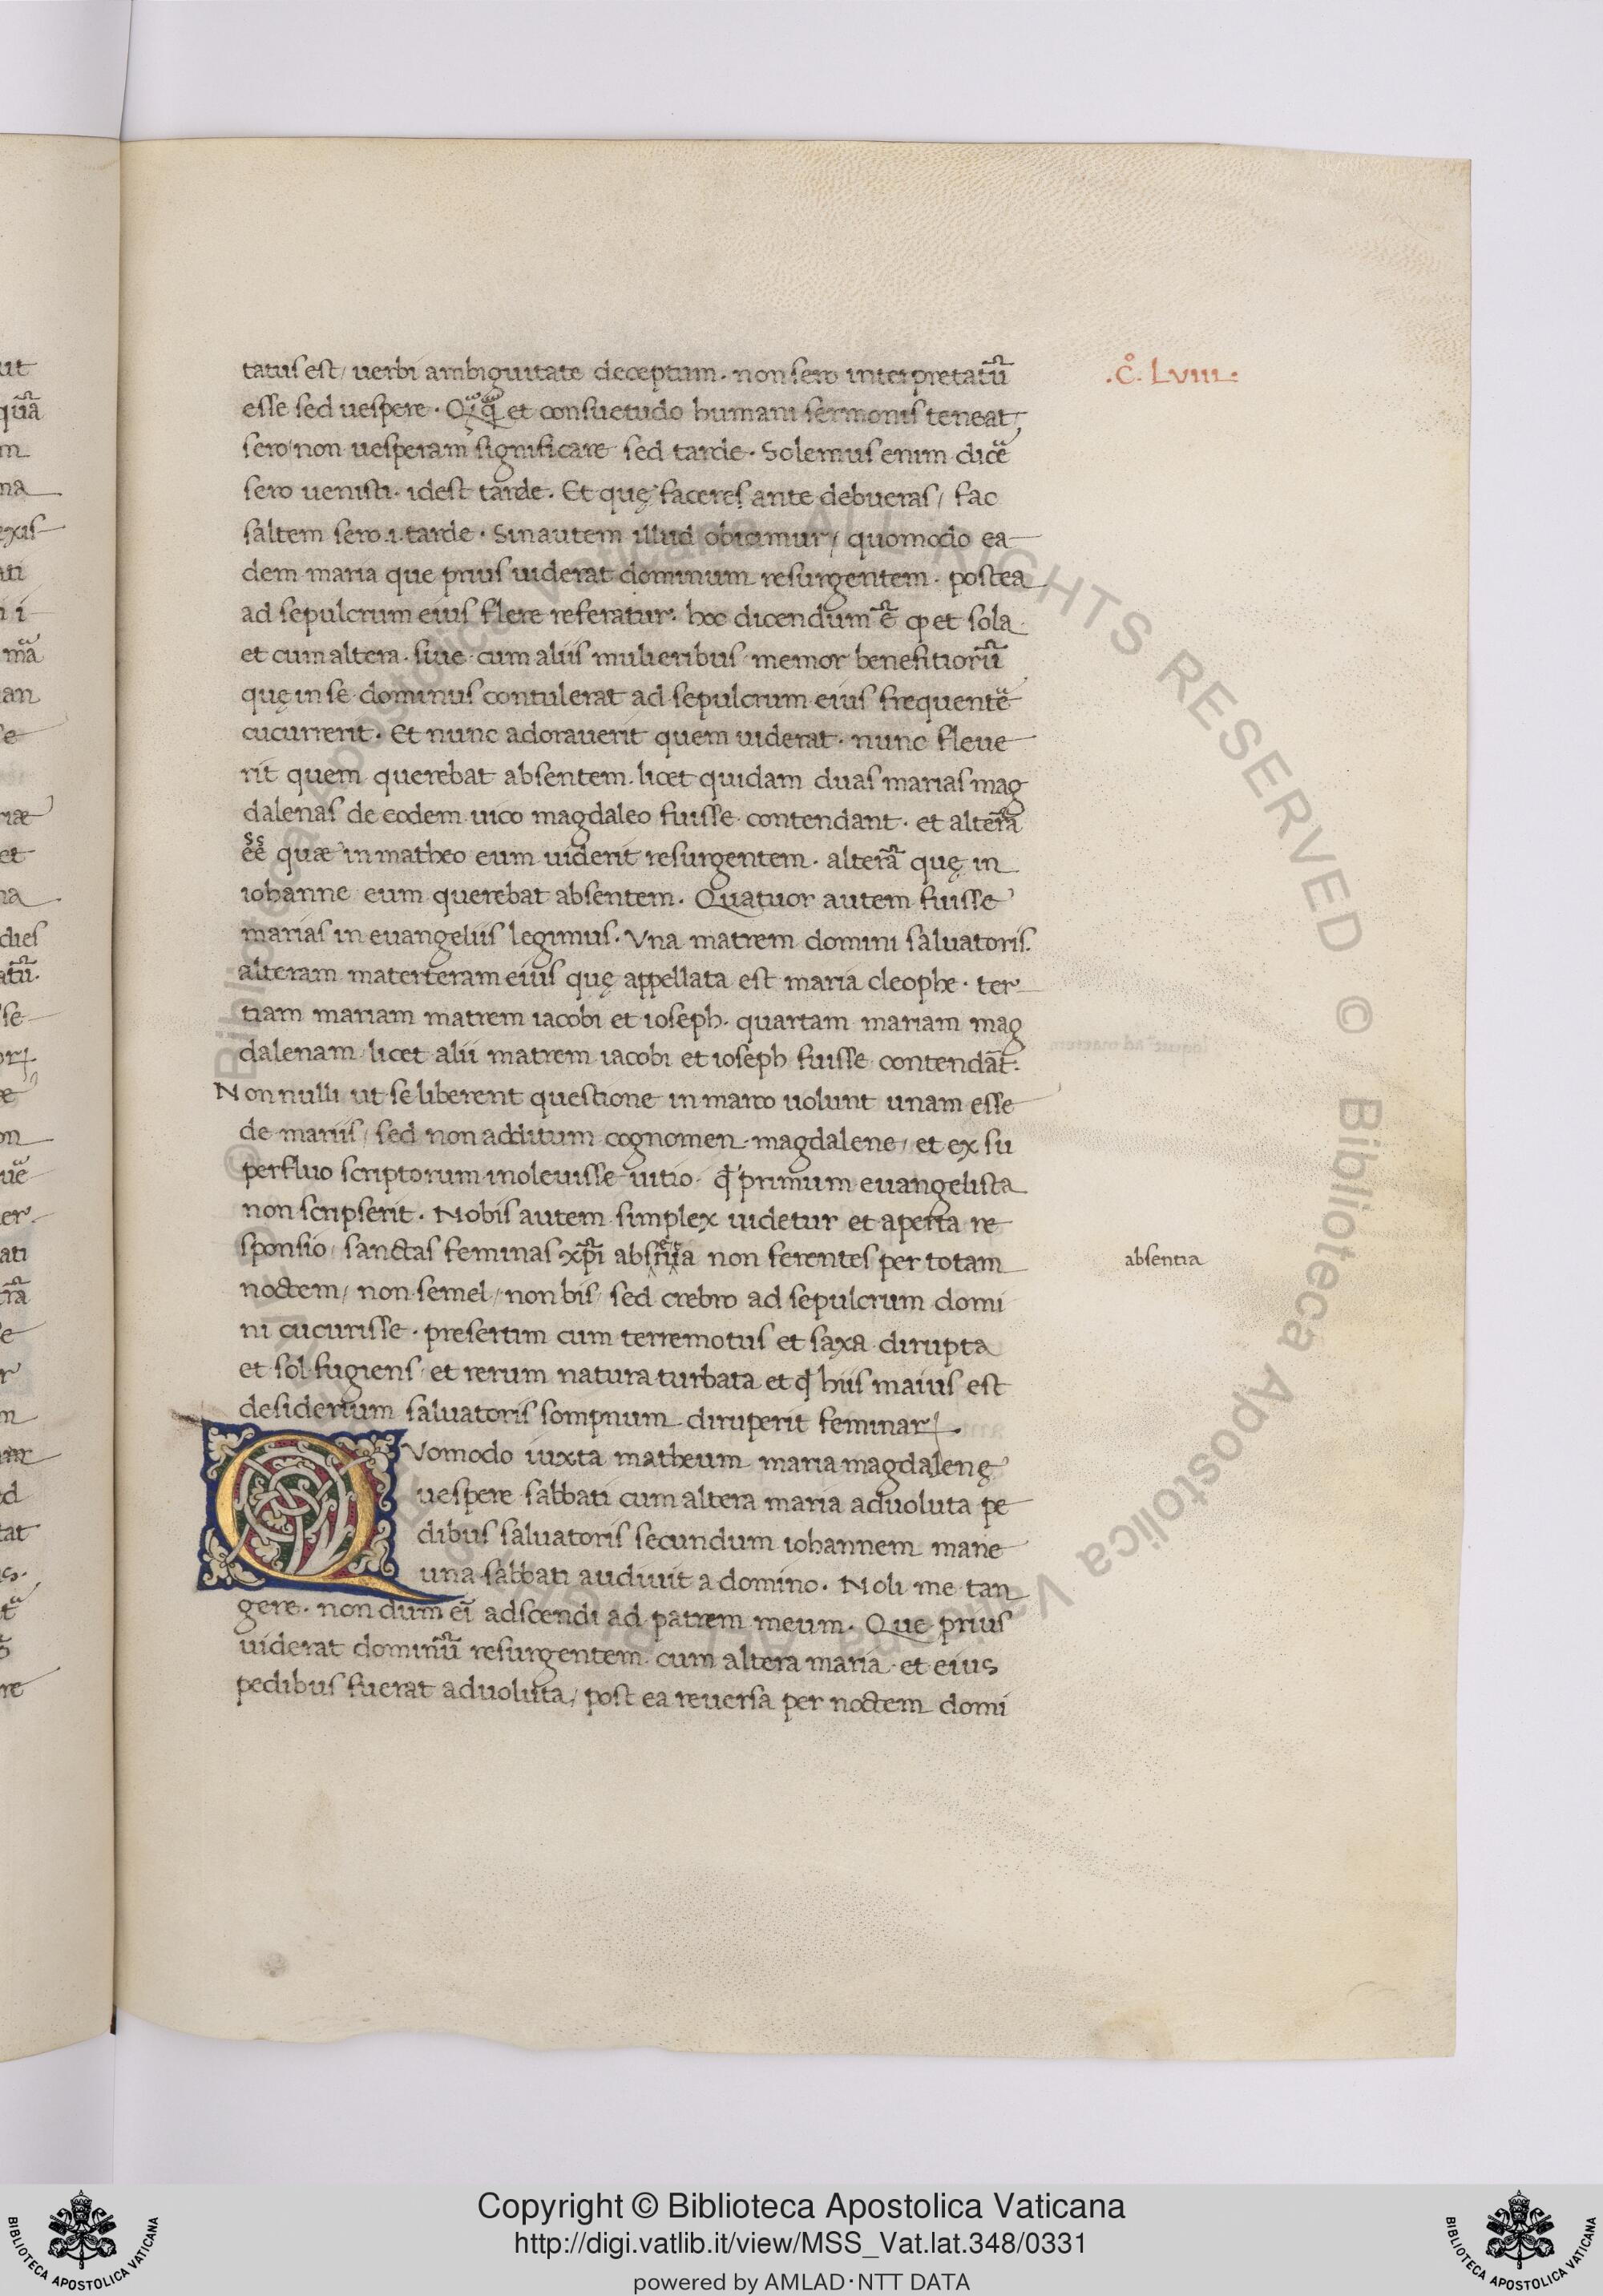 tatus est/ uerbi ambiguitate deceptum. non sero interpretatū
esse sed uespere. et consuetudo humani sermonis teneat,
sero/ non uesperam significare sed tarde. Solemus enim dicē
sero uenisti. idest tarde. Et quę faceres ante debueras/ fac
saltem sero .i. tarde. Sin autem illud obicimur/ quomodo ea
dem maria que prius uiderat dominum resurgentem. postea
ad sepulcrum eius flere referatur. hoc dicendum ē ꝙ et sola
et cum altera. siue cum aliis mulieribus memor benefitiorū
quę in se dominus contulerat ad sepulcrum eius frequentē
cucurrerit. Et nunc adorauerit quem uiderat. nunc fleue
rit quem querebat absentem. licet quidam duas marias mag
dalenas de eodem uico magdaleo fuisse contendant. et alterā
ēē quæ in matheo eum uiderit resurgentem. alterā quę in
iohanne eum querebat absentem. Quatuor autem fuisse
marias in euangeliis legimus. Vna matrem domini saluatoris.
alteram materteram eius quę appellata est maria cleophe. ter
tiam mariam matrem iacobi et ioseph. quartam mariam mag
dalenam/ licet alii matrem iacobi et ioseph fuisse contendāt.
Non nulli ut se liberent questione in marco uolunt unam esse
de mariis/ sed non additum cognomen magdalene/ et ex su
perfluo scriptorum inoleuisse uitio. ꝙ primum euangelista
non scripserit. Nobis autem simplex uidetur et aperta re
sponsio/ sanctas feminas xp̄i non ferentes per totam
noctem/ non semel/ non bis/ sed crebro ad sepulcrum domi
ni cucurisse. presertim cum terremotus et saxa dirupta
et sol fugiens/ et rerum natura turbata et ꝙ hiis maius est
desiderium saluatoris sompnum diruperit feminaꝝ.
Quomodo iuxta matheum maria magdalenę
uespere sabbati cum altera maria aduoluta pe
dibus saluatoris secundum iohannem mane
una sabbati audiuit a domino. Noli me tan
gere. non dum eī adscendi ad patrem meum. Que prius
uiderat dominū resurgentem cum altera maria et eius
pedibus fuerat aduoluta/ post ea reuersa per noctem domi
.C̊. LVIII.
absentia
© Biblioteca Apostolica Vaticana ALL RIGHTS RESERVED © Biblioteca Apostolica Vaticana
Copyright © Biblioteca Apostolica Vaticana
http://digi.vatlib.it/view/MSS_Vat.lat.348/0331
powered by AMLAD·NTT DATA
BIBLIOTECA APOSTOLICA VATICANA
BIBLIOTECA APOSTOLICA VATICANA